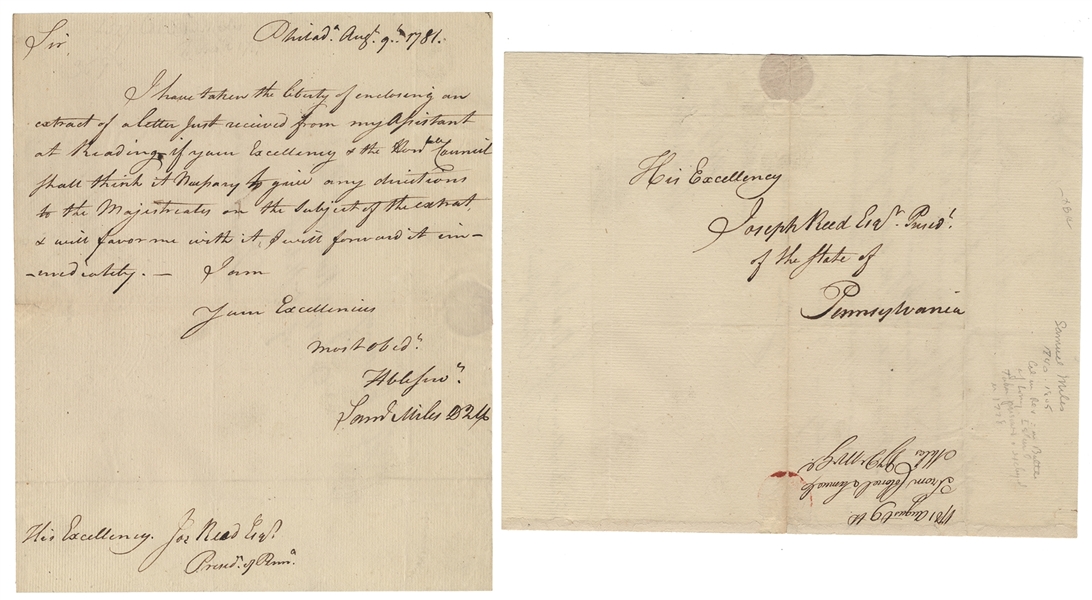 Philad.ᵃ Augᵗ. 9ᵗʰ. 1781.
Sir,
I have taken the liberty of enclosing an
extract of a letter Just received from my Assistant
at Reading, if your Excellency & the Honᵇˡᵉ Council
shall think it Necessary to give any directions
to the Majestreates on the Subject of the extrat,
& will favor me with it, I will forward it im–
–mediately. — I am
Your Excellencies
most obedᵗ.
Hble servᵗ.
Samˡ Miles D Q M
His Excellency. Jos Reed Esqʳ.
Presidᵗ. of Pennᵃ.
His Excellency
Joseph Reed Esqʳ. Presidᵗ.
of the State of
Pennsylvania
1781 August 9th.
From Colonel Samuel
Miles D Q M Gˡ.
Samuel Miles
1740 1805
Col in Rev.
in 1778